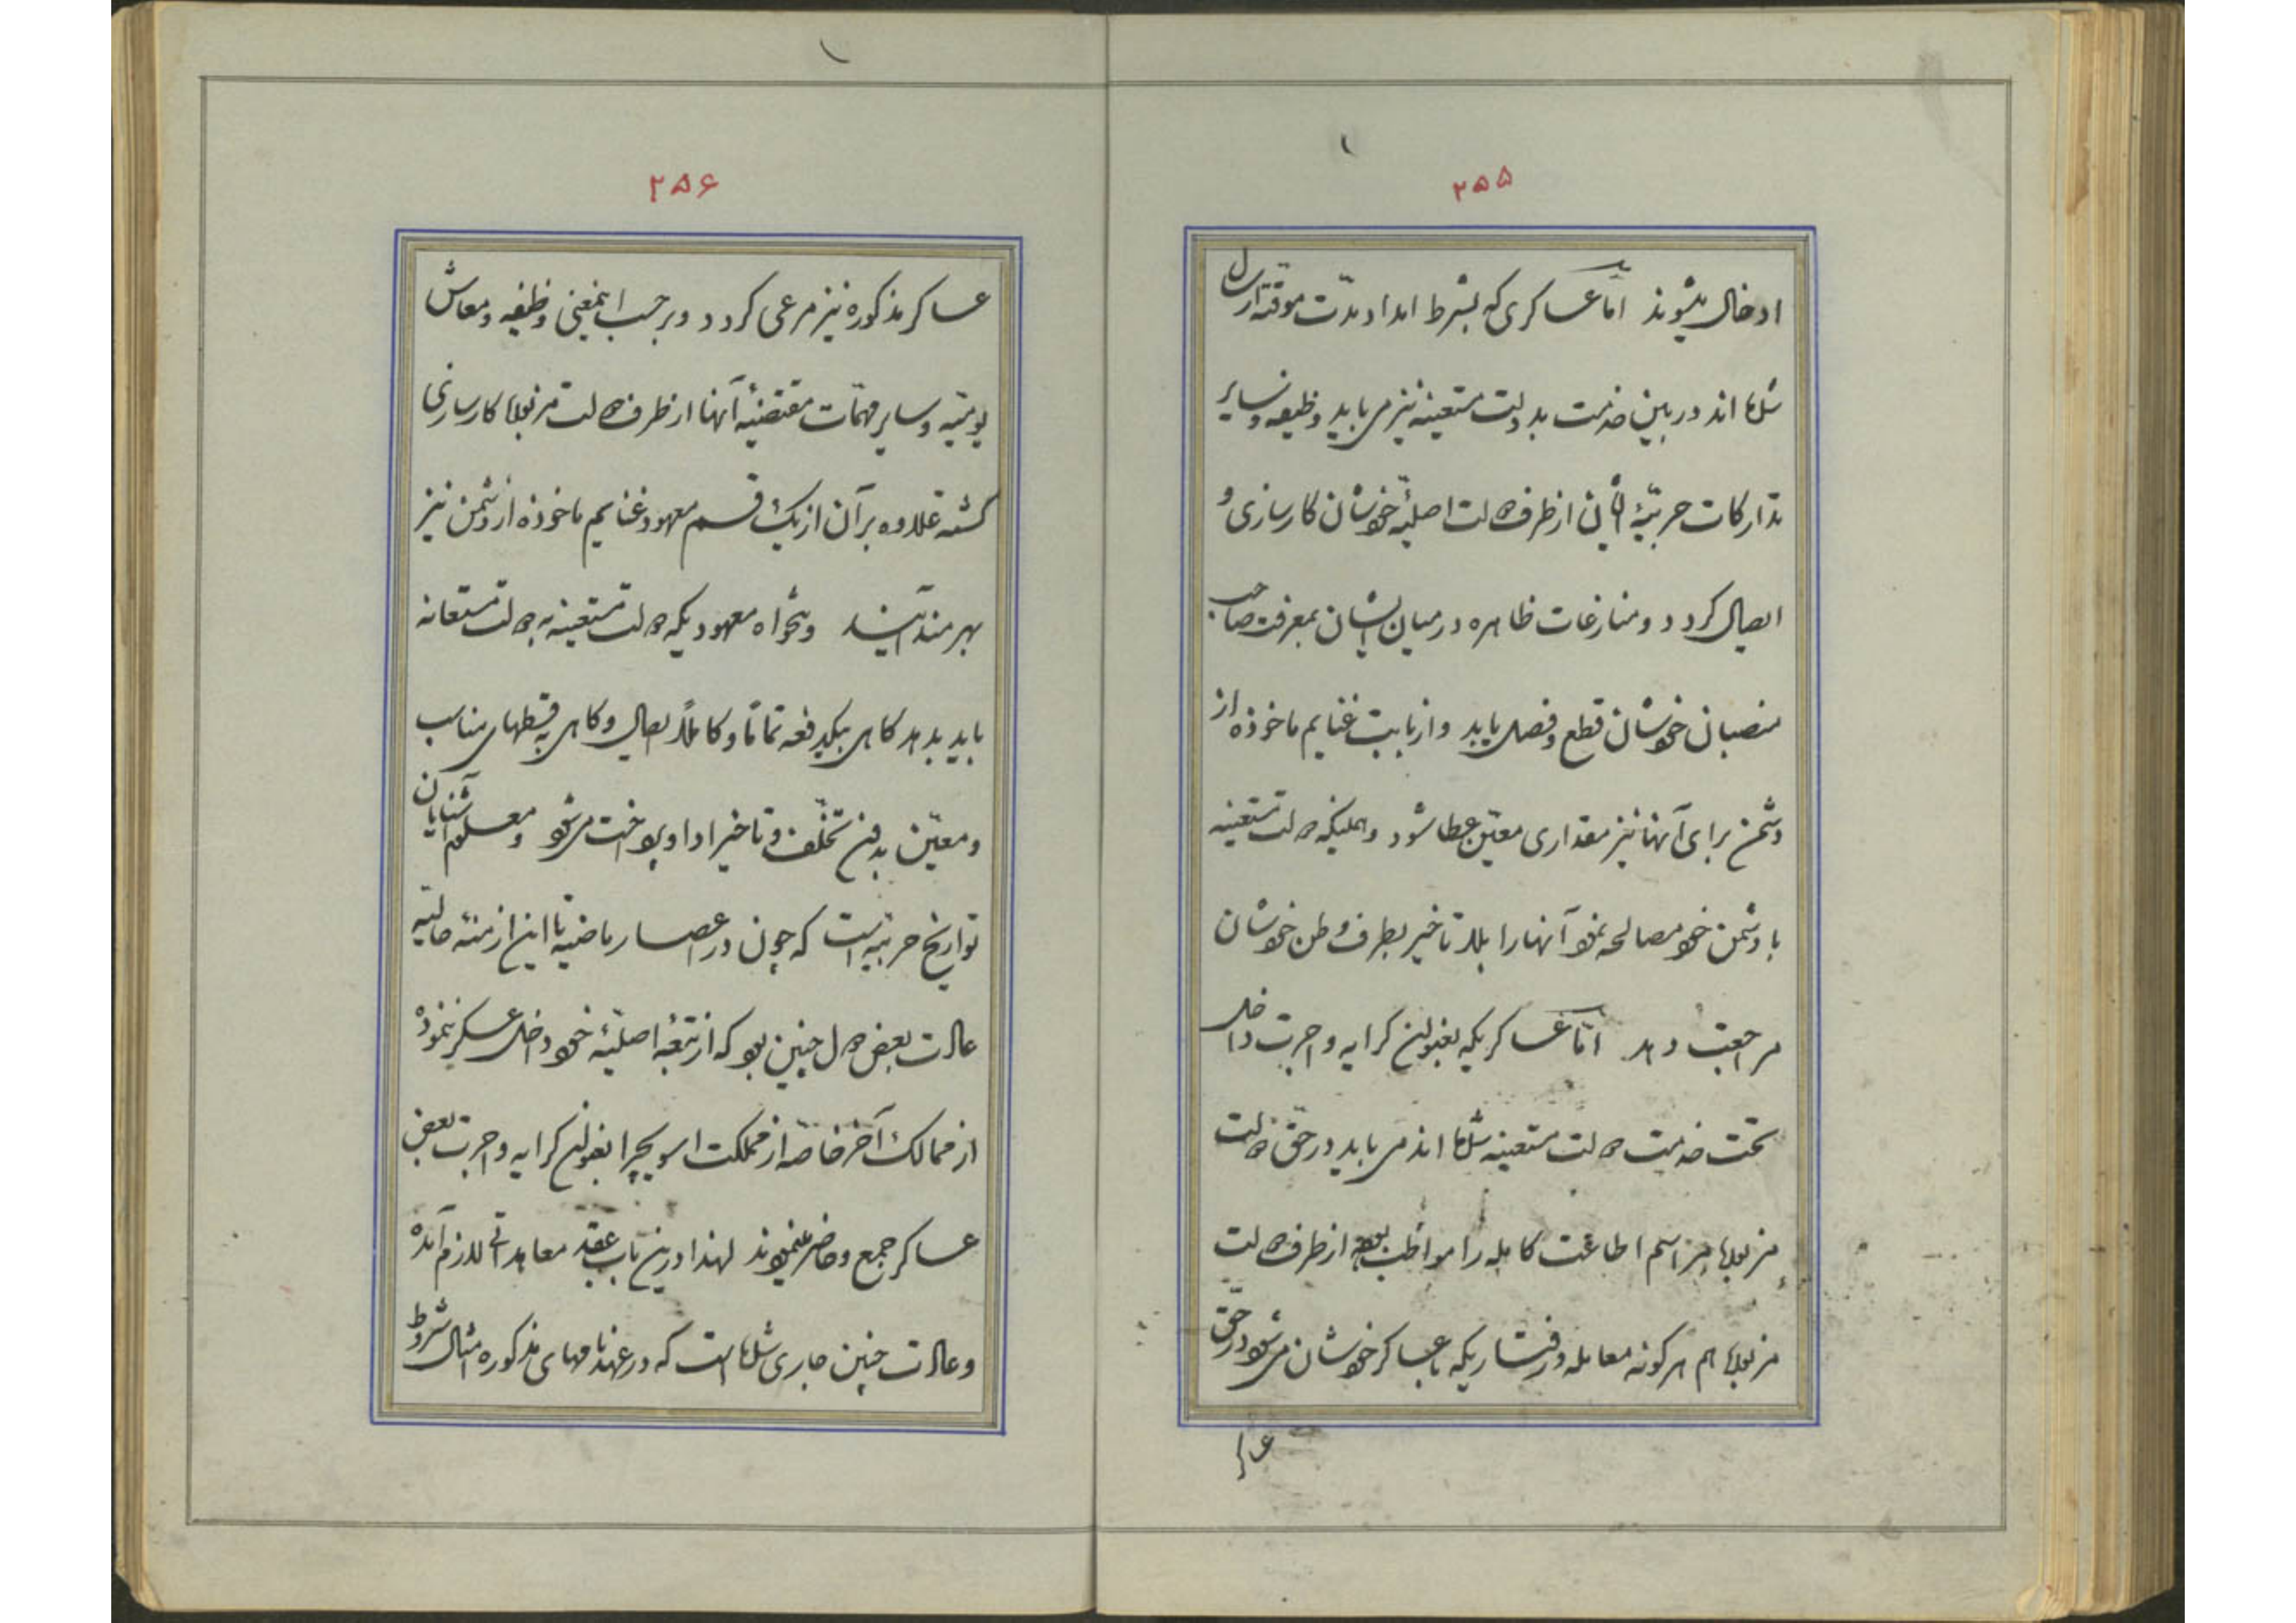 ۲۵۵
ادخال میشوند امّا عساکری که بشرط امداد مدّت موقته ارسال
شده‌اند در بین خدمت بدولت مستعینه نیز می‌باید وظیفه و سایر
تدارکات حربیّهٔ ایشان از طرف دولت اصلیّهٔ خودشان کارسازی و
ایصال کردد و منازعات ظاهره در میان ایشان بمعرفت صاحب
منصبان خودشان قطع و فصل یابد و از بابت غنایم ماخوذه از
دشمن برای آنها نیز مقداری معیّن عطا شود و همینکه دولت مستعینه
با دشمن خود مصالحه نمود آنها را بلا تاخیر بطرف وطن خودشان
مراجعت دهد امّا عساکریکه بعنوان کرایه و اجرت داخل
تحت خدمت دولت مستعینه شده‌اند می‌باید در حقّ دولت
مزبوره مراسم اطاعت کامله را مواظب بوده از طرف دولت
مزبوره هم هر کونه معامله و رفتاریکه با عساکر خودشان می‌شود در حقّ
۲۵۶
عساکر مذکوره نیز مرعی کردد و برحسب اینمعنی وظیفه و معاش
یومیّه و سایر مهمّات مقتضیهٔ آنها از طرف دولت مزبوره کارسازی
کشته علاوه بر آن از یک قسم معهود غنایم ماخوذه از دشمن نیز
بهره‌مند آیند و تنخواه معهودیکه دولت مستعینه به دولت مستعانه
باید بدهد کاهی بیکدفعه تماماً و کاملاً ایصال و کاهی به قسطهای مناسب
و معیّن بدون تخلّف و تاخیر ادا و پرداخت می‌شود و معلوم آشنایان
تواریخ حربیّه است که چون در اعصار ماضیه تا این ازمنهٔ حالیّه
عادت بعض دول چنین بود که از تبعهٔ اصلیّهٔ خود داخل عسکر ننموده
از ممالک آخر خاصّه از مملکت اسویچرا بعنوان کرایه و اجرت بعض
عساکر جمع و حاضر مینمودند لهذا درین باب عقد معاهداتی لازم آمده
و عادت چنین جاری شده است که در عهدنامهای مذکوره امثال شروط